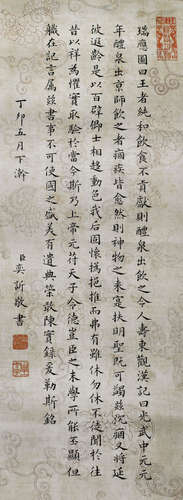 瑞應圖曰王者純和飲食不貢獻則醴泉出飲之令人壽東觀漢記曰光武中元元
年醴泉出京師飲之者痼疾皆愈然則神物之來寔扶明聖既可蠲茲沉痾又將延
彼遐齡是以百辟卿士相趨動色我后固懷撝挹推而弗有雖休勿休不徒聞於往
昔以祥為懼實取驗於當今斯乃上帝元符天子令德豈臣之末學所能丕顯但
職在記言屬茲書事不可使國之盛美有遺典策敢陳實錄爰勒斯銘
丁卯五月下澣
臣奕訢敬書